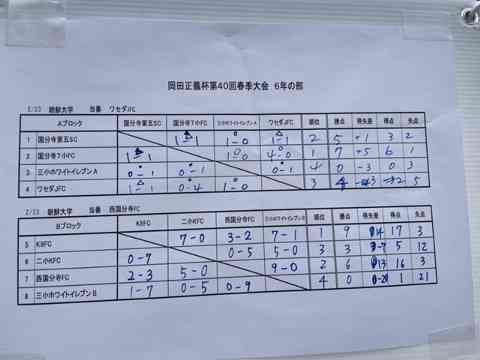 岡田正義杯第40回春季大会 6年の部
2/23 朝鮮大学 当番 ワセダJFC
Aブロック 国分寺第五SC 国分寺7小FC 三小ホワイトイレブンA ワセダJFC 順位 勝点 得失差 得点 失点
1 国分寺第五SC 1-1 1-0 1-1 2 5 +1 3 2
2 国分寺7小FC 1-1 1-0 4-0 1 7 +5 6 1
3 三小ホワイトイレブンA 0-1 0-1 0-1 4 0 -3 0 3
4 ワセダJFC 1-1 0-4 1-0 3 4 2 5
2/23 朝鮮大学 当番 西国分寺FC
Bブロック K9FC 二小KFC 西国分寺FC 順位 勝点 得失差 得点 失点
5 K9FC 7-0 3-2 7-1 1 9 14 17 3
6 二小KFC 0-7 0-5 5-0 3 3 -7 5 12
7 西国分寺FC 2-3 5-0 9-0 2 6 13 16 3
8 三小ホワイトイレブンB 1-7 0-5 0-9 4 0 -20 1 21